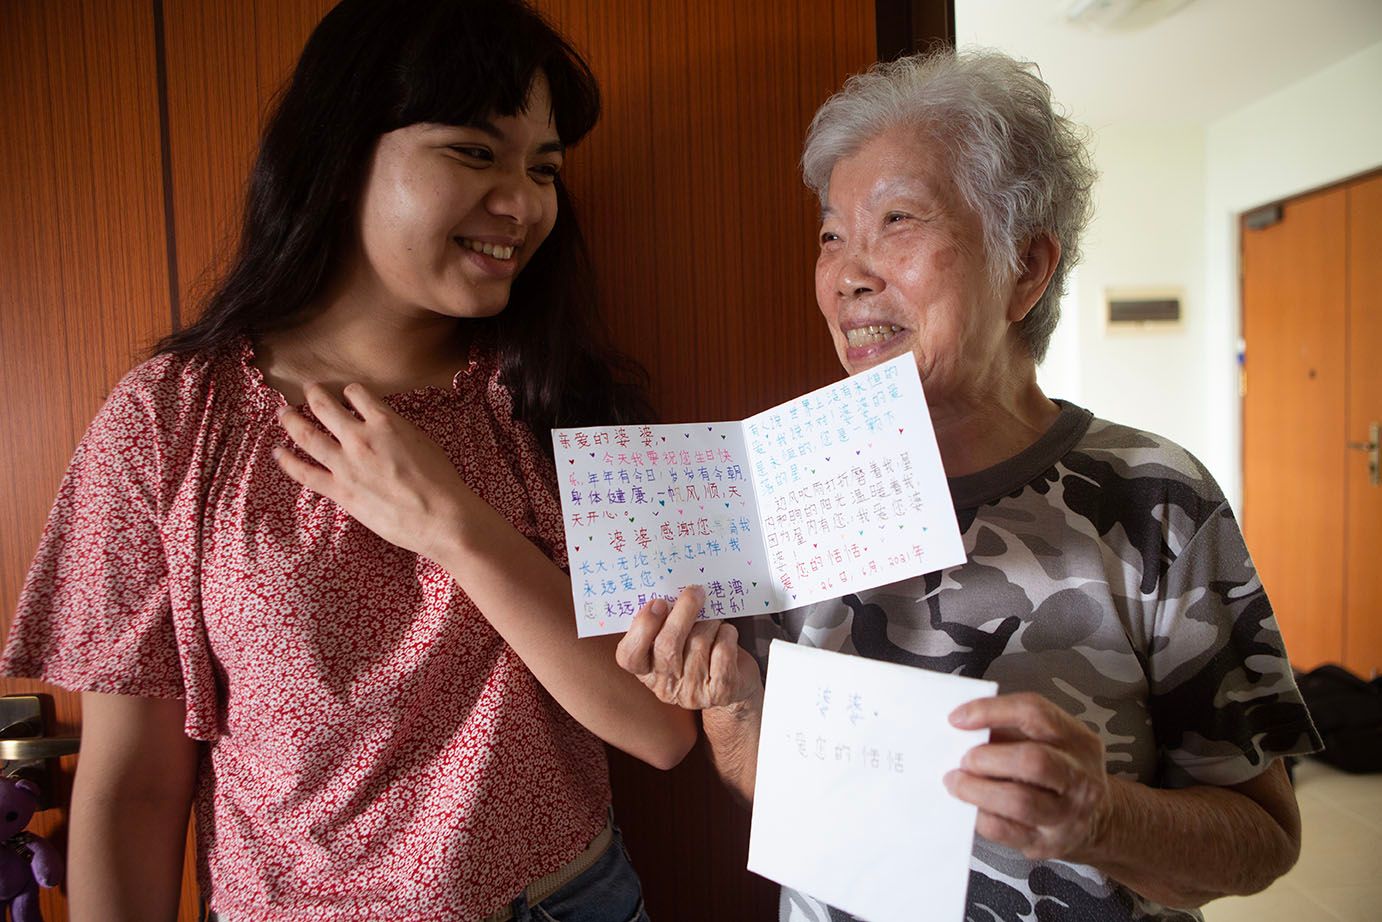 亲爱的婆婆,
今天我要祝您生日快
乐,年年有今日,岁岁有今朝,
身体健康,一帆风顺,天
天开心。
婆婆,感谢您
我
长大,无论
怎么样,我
永远爱您。
您永远是
港湾,
快乐!
有人说,世界上没有永恒的
爱。我说不对!婆婆的爱
是永恒的,您是一颗不
落的星。
边风吹雨打折磨着我,屋
内和明的阳光温暖着我。
因为屋内有您,我爱您婆
婆!
您的恬恬
26日,6月,2021年
婆婆,
爱您的恬恬